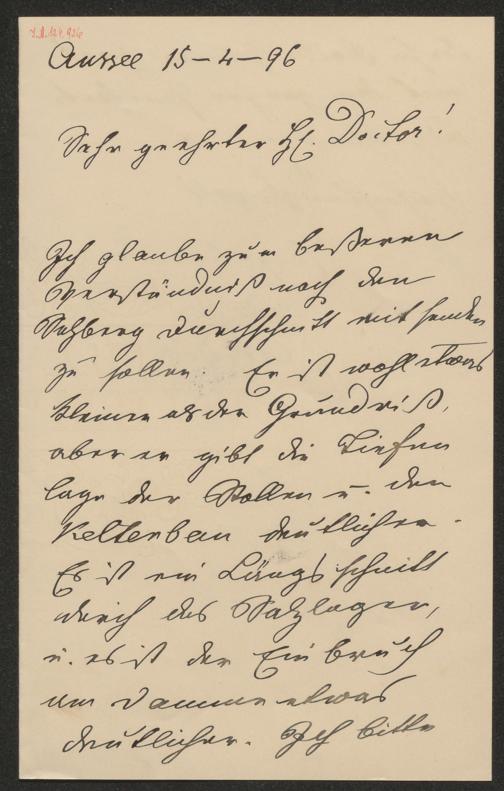 I.N.129.926
Aussee 15-4-96
Sehr geehrter H. Doctor!
Ich glaube zum besseren
Verständniß noch den
Salzberg durchschnitt mit senden
zu sollen. Er ist wohl etwas
kleiner als der Grundriß,
aber er gibt die Tiefen
lage der Stollen u. den
Keltenbau deutlicher.
Es ist ein Längsschnitt
durch das Salzlager,
u. es ist der Einbruch
am Damme etwas
deutlicher. Ich bitte